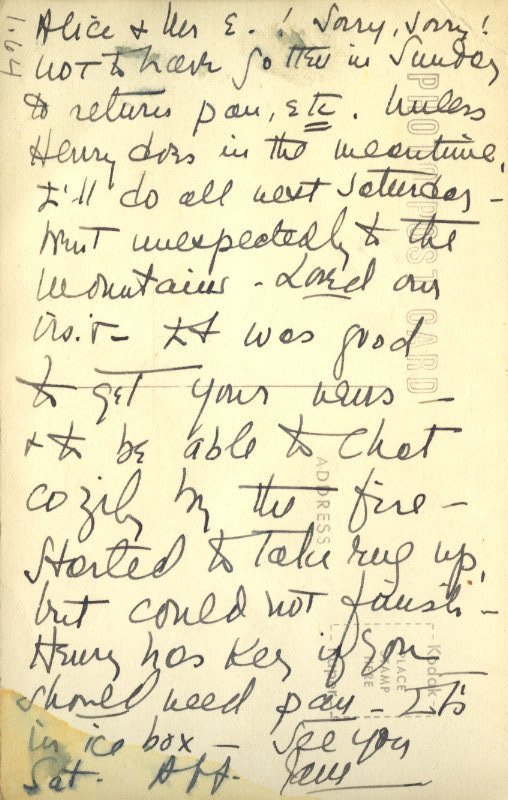 1.64
Alice & Mr E. ! Sorry, sorry!
not to have gotten in Sunday
to return pan, etc. Unless
Henry does in the meantime,
I'll do all next Saturday -
Went unexpectedly to the
Mountains - Loved our
Visit - It was good
to get your news -
& to be able to chat
cozily by the fire -
Started to take rug up,
but could not finish -
Henry has key if you
should need pan - It's
in ice box - See you
Sat. Aff. Jane
PHOTO POST CARD
ADDRESS
Kodak
PLACE
STAMP
HERE